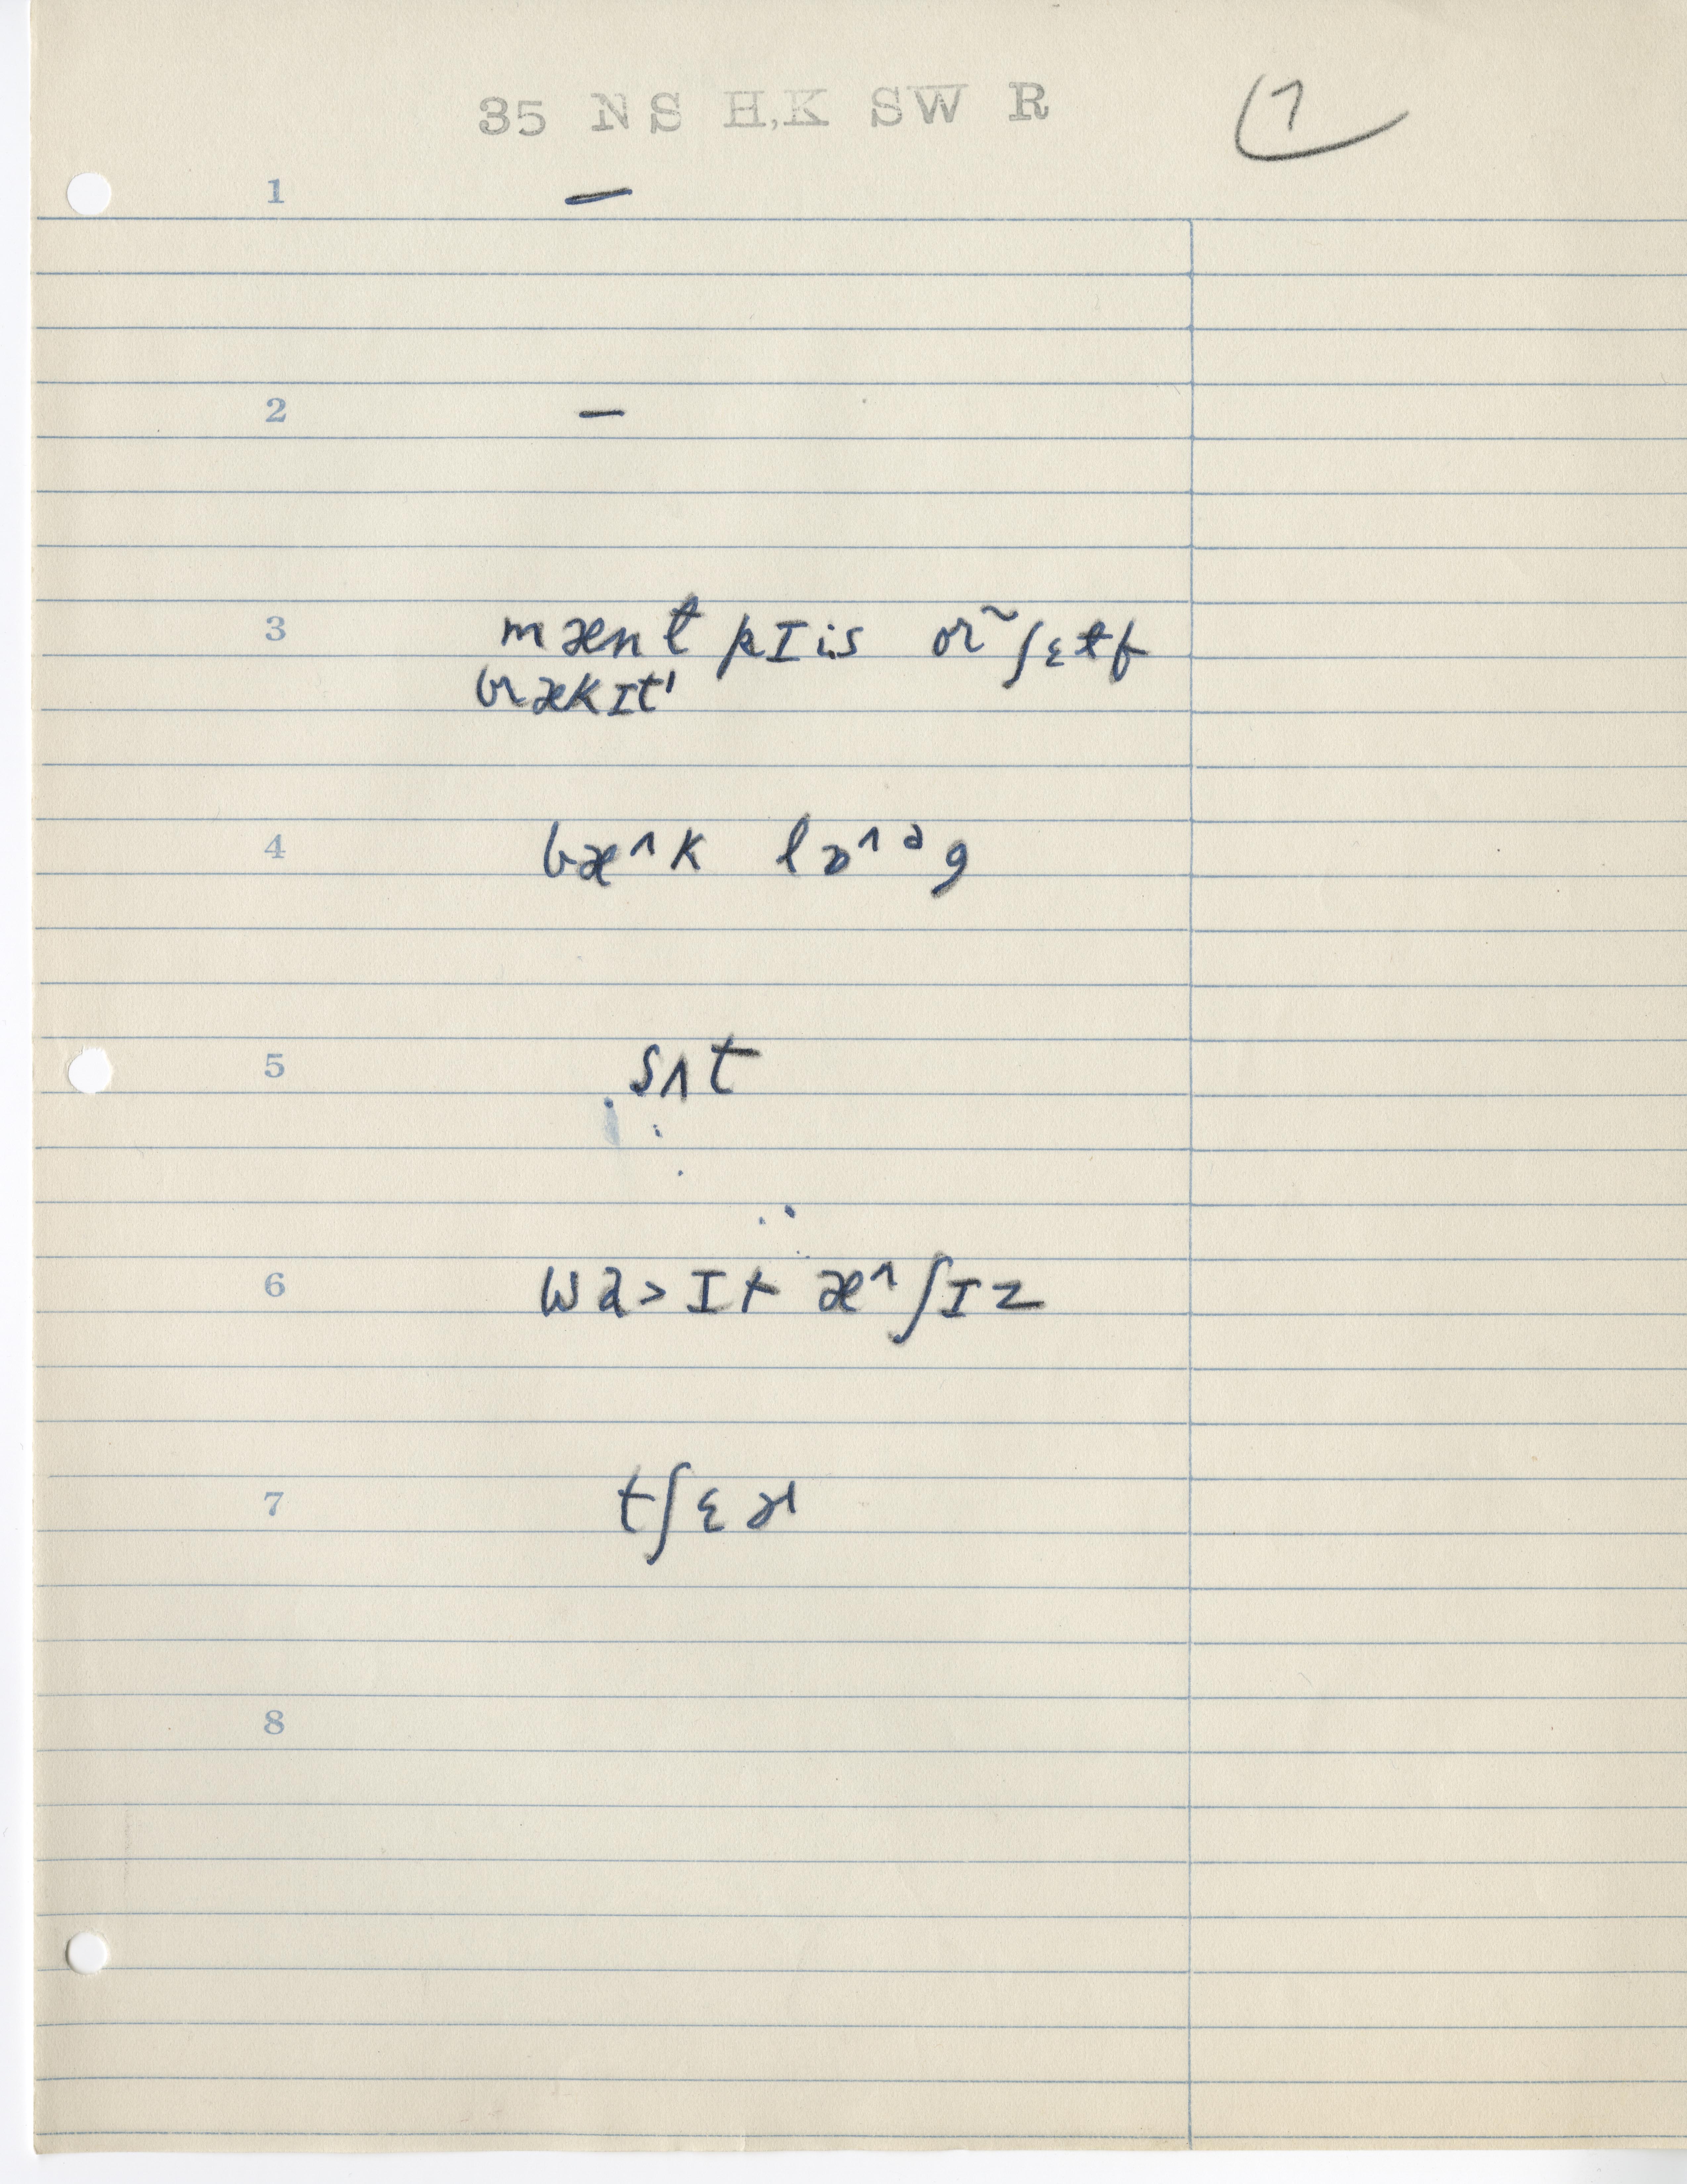 35 NS H,K SW R
7
1 —
2 —
3 mænt pIis or~ʃɛtf
brækIt'
4 bæ^k lɒ^ᵊg
5 sʌt
6 wa>It æ^ʃIz
7 tʃɛɚ
8